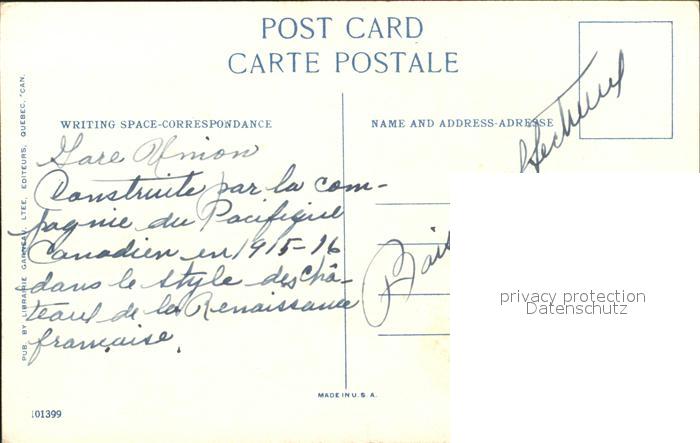 POST CARD
CARTE POSTALE
WRITING SPACE-CORRESPONDANCE
NAME AND ADDRESS-ADRESSE
Gare Union
Construite par la com-
pagnie du Pacifique
Canadien en 1915-16
dans le style des châ-
teaux de la Renaissance
française.
privacy protection
Datenschutz
PUB. BY LIBRAIRIE GARNEAU, LTEE, EDITEURS, QUEBEC, CAN.
MADE IN U.S.A.
101399